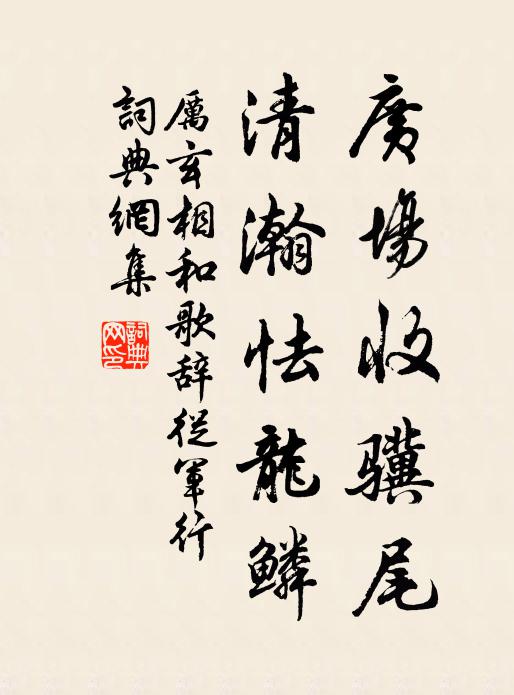 廣場收驥尾
清瀚怯龍鱗
厲玄相和歌辭從軍行
詞典網集
詞典網印